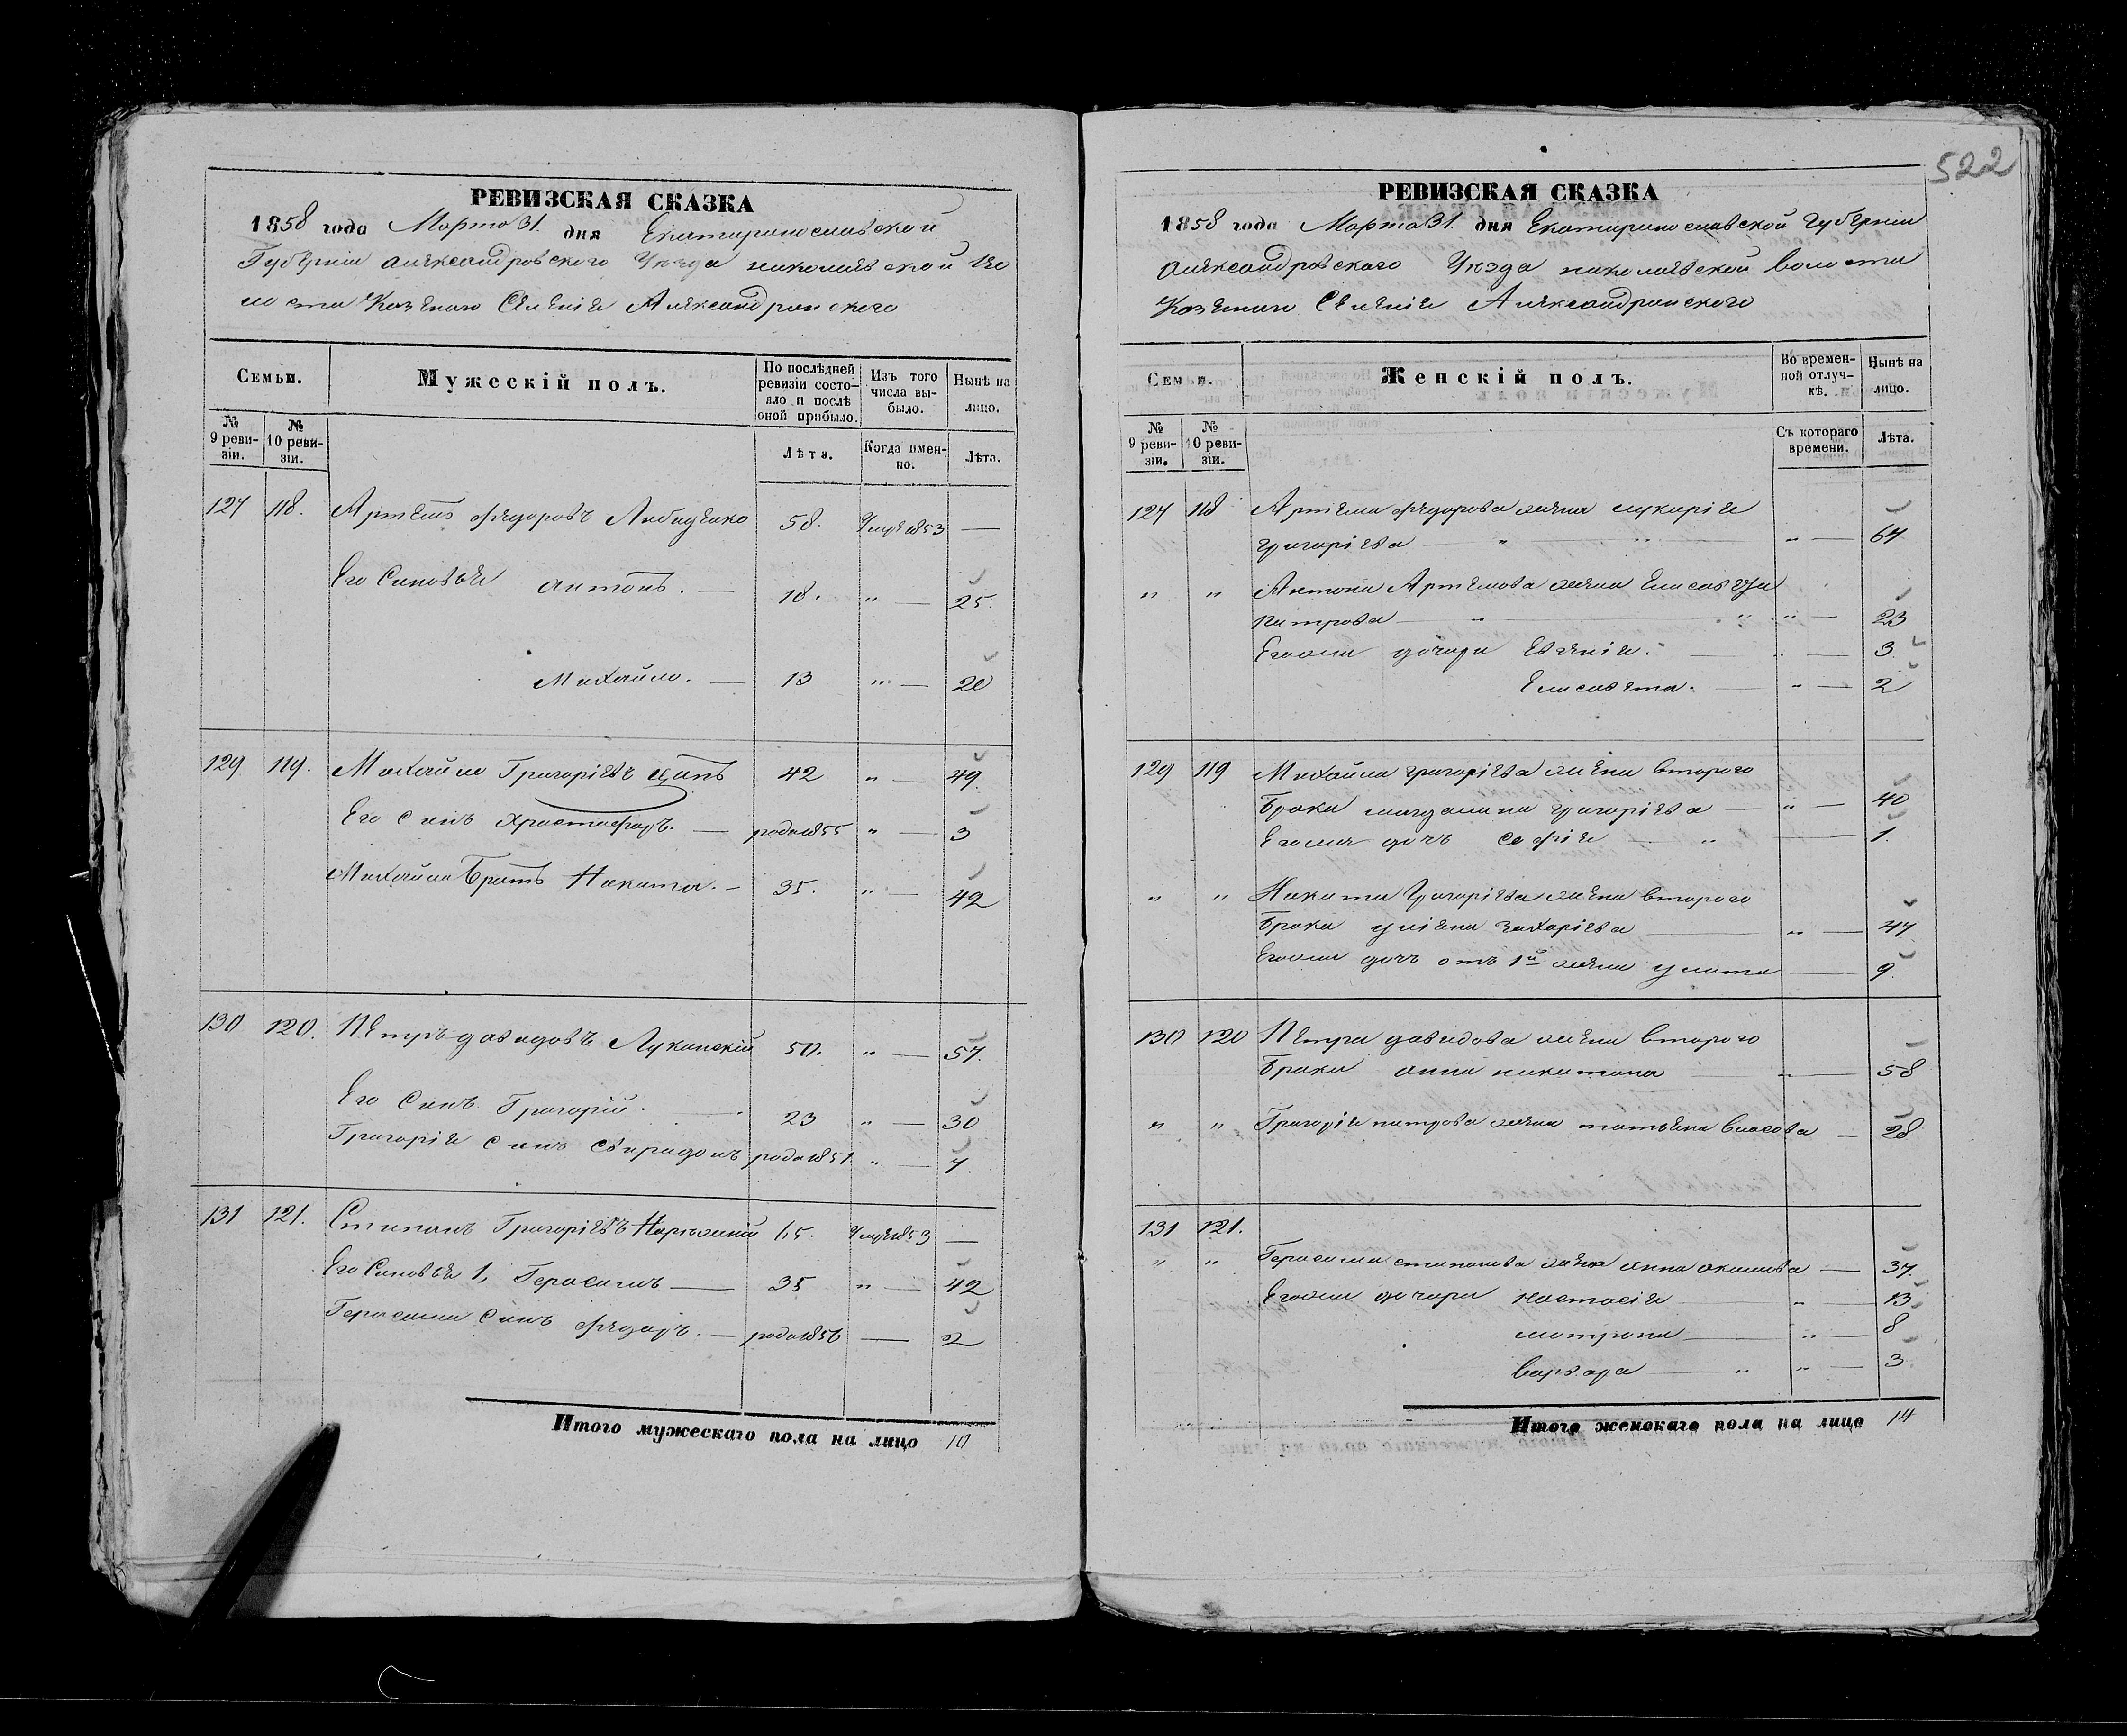 РЕВИЗСКАЯ СКАЗКА
1858 года Марта 31. дня Екатеринославской
Губерніи Александровского Уезда Николаевской Во
лости Казенаго Селенія Александринского
Семьи.
Мужескій полъ.
По послѣдней ревизіи состояло и послѣ оной прибыло.
Изъ того числа выбыло.
Нынѣ на лицо.
№ 9 ревизіи.
№ 10 ревизіи.
Лѣта.
Когда именно.
Лѣта.
127 118. Артемъ Федоровъ 58. Умре 1853 —
Его Синовья Антонъ. — 18. " — 25.
Михайло. — 13 " — 20
129 119. Михайло Григоріевъ 42 " — 49.
Его Синъ Христофоръ. — рода 1855 " — 3
Михайла Братъ Никита. — 35. " — 42
130 120. Петръ Давидовъ 50. " — 57.
Его Синъ Григорій. — 23 " — 30
Григорія Синъ Свиридонъ рода 1851 " — 7.
131 121. Степанъ Григоріевъ 65. Умре 1853 —
Его Синовья 1, Герасимъ — 35 " — 42
Герасима Синъ Федоръ. — рода 1856 — 2
Итого мужескаго пола на лицо 10
522
РЕВИЗСКАЯ СКАЗКА
1858 года Марта 31. дня Екатеринославской Губерніи
Александровского Уезда Николаевской Волости
Казенаго Селенія Александринского
Семьи.
Женскій полъ.
Во временной отлучкѣ.
Нынѣ на лицо.
№ 9 ревизіи.
№ 10 ревизіи.
Съ котораго времени.
Лѣта.
127 118 Артема Федорова жена Лукерія
Григоріева — " — " — " — 67
" " Антона Артемова жена Елисавета
Петрова — " — " " — 23
Егожы дочери Евгенія. — " — 3
Елисавета. — " — 2
129 119 Михайла Григоріева жена второго
Брака Магдалина Григоріева — " — 40
Егожа дочь Софія — " — 1.
" " Никиты Григоріева жена второго
Брака Уліяна Захаріева — " — 47
Егожы дочь отъ 1й жены Улита — 9.
130 120 Петра Давидова жена второго
Брака Анна Никитина — " — 58
" " Григорія Петрова жена Татьяна Власова — 28
131 121.
" " Герасима Степанова жена Анна Акимова — 37.
Егожы дочери Настасія — " — 13
Матрона — " — 8
Варвара — " " — 3
Итого женскаго пола на лицо 14